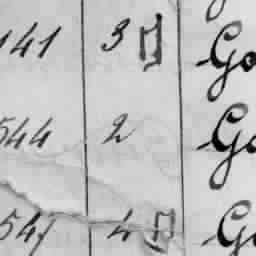 141 3 Go
544 2 Go
547 4 Go